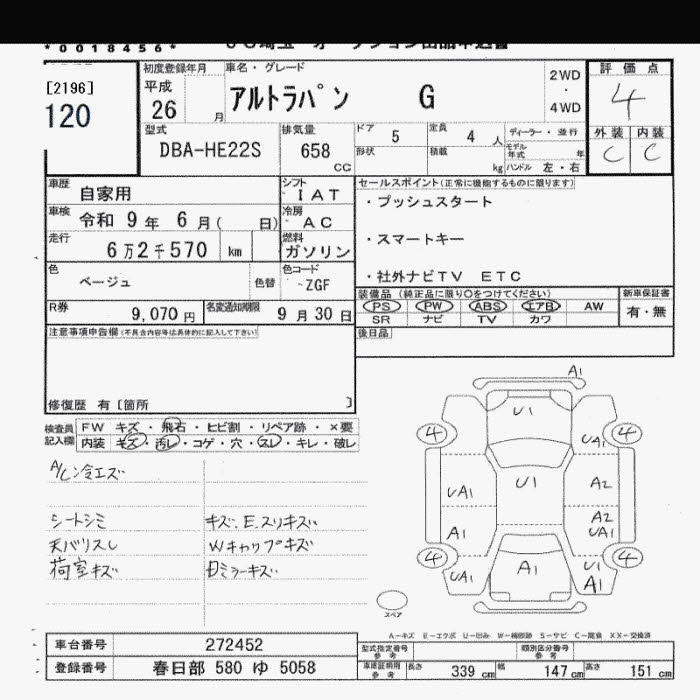 *0018456*
[2196]
120
初度登録年月 車名・グレード
平成 26 月 アルトラパン G 2WD・4WD
評価点
4
外装 内装
C C
型式 DBA-HE22S
排気量 658 CC
ドア 5 定員 4 人 ディーラー・並行
形状 積載 kg モデル年式 年
ハンドル 左・右
車歴 自家用
シフト IAT
車検 令和 9年 6月( 日)
冷房 AC
走行 6万2千570 km
燃料 ガソリン
色 ベージュ 色替
色コード ZGF
R券 9,070円 名変通知期限 9月30日
セールスポイント(正常に機能するものに限ります)
・プッシュスタート
・スマートキー
・社外ナビTV ETC
装備品(純正品に限り○をつけてください) 新車保証書
PS PW ABS エアB AW 有・無
SR ナビ TV カワ
後日品
注意事項申告欄(不具合内容等は具体的に記入して下さい)
修復歴 有[箇所 ]
検査員記入欄
FW キズ・飛石・ヒビ割・リペア跡・×要
内装 キズ・汚レ・コゲ・穴・スレ・キレ・破レ
A/C冷エズ
シートシミ キズ、E、スリキズ
天バリスレ Wキャップキズ
荷室キズ
A1
U1
4 4
UA1
U1
UA1 A2
A1 A2
UA1
4 4
UA1 A1 U1
A1
スペア
A-キズ E-エクボ U-凹み W-補修跡 S-サビ C-腐食 XX-交換済
車台番号 272452
登録番号 春日部 580 ゆ 5058
型式指定番号 参考 類別区分番号 参考
車庫証明用 参考 長さ 339 cm 幅 147 cm 高さ 151 cm